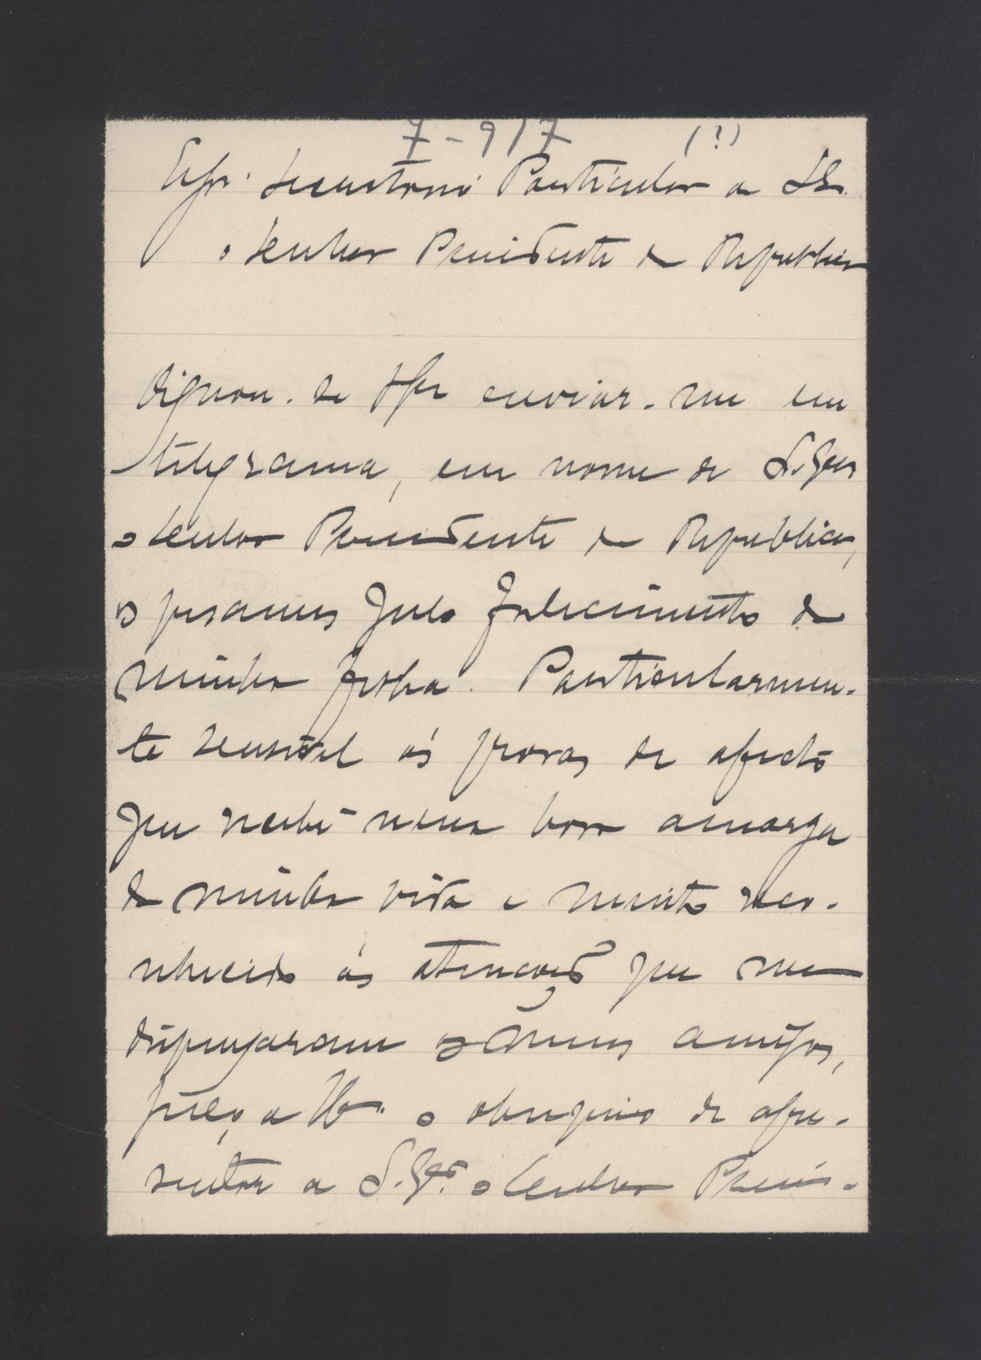 7-917 (?)
Secretario Particular a
o Senhor Presidente da Republica
Dignou-se enviar-me em
telegrama, em nome de S. Ex.
o Senhor Presidente da Republica,
os pesames pelo falecimento de
minha filha. Particularmen-
te sensivel ás provas de afecto
que recebi numa hora amarga
da minha vida e muito reco-
nhecido ás atenções que me
dispensaram os meus amigos,
peço a V. o obsequio de apre-
sentar a S. Ex.ª o Senhor Presi-